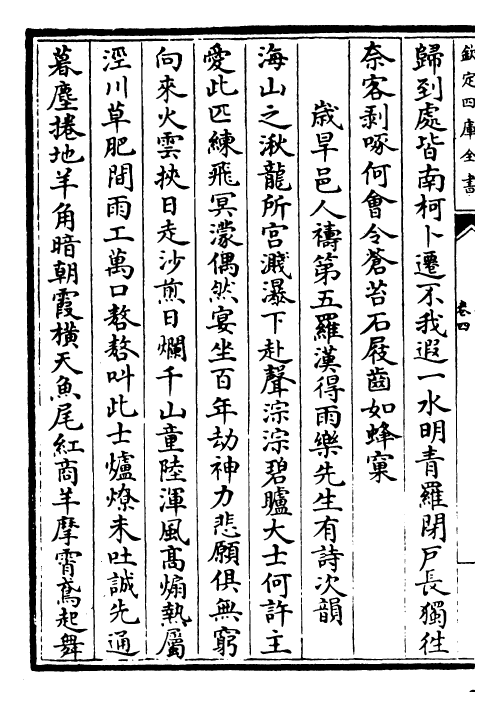 欽定四庫全書
卷四
歸到處皆南柯卜遷不我遐一水明青羅閉戶長獨徃
奈客剥啄何會令蒼苔石屐齒如蜂窠
歲旱邑人禱第五羅漢得雨樂先生有詩次韻
海山之湫龍所宮濺瀑下赴聲淙淙碧臚大士何許主
愛此匹練飛冥濛偶然宴坐百年劫神力悲願俱無窮
向來火雲挾日走沙煎日爛千山童陸渾風髙煽熱屬
涇川草肥閒雨工萬口嗸嗸叫此士爐燎未吐誠先通
暮塵捲地羊角暗朝霞橫天魚尾紅商羊摩霄鳶起舞